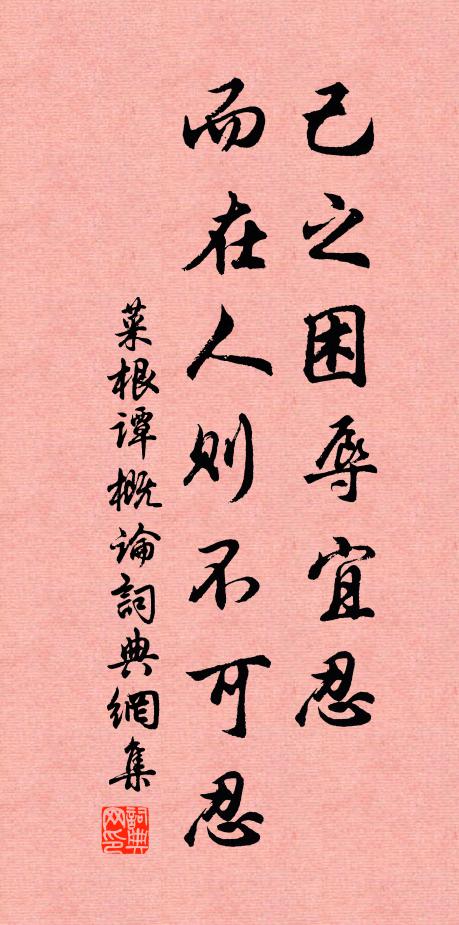 己之困辱宜忍
而在人则不可忍
菜根谭概论詞典網集
詞典网印